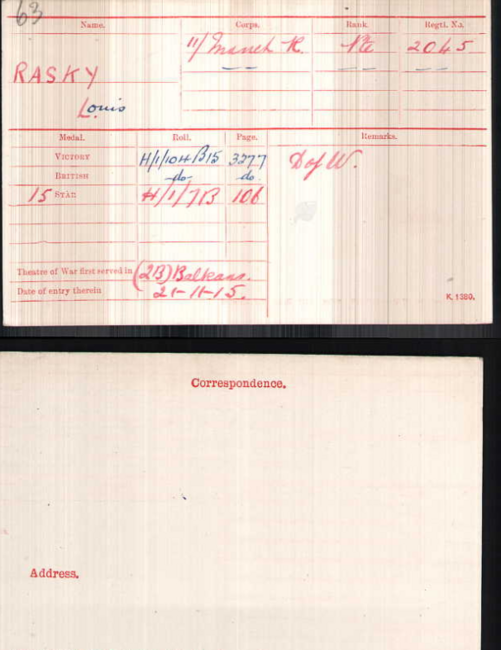 63
Name. Corps. Rank. Regtl. No.
11/Manch R. Pte 2045
RASKY
Louis
Medal. Roll. Page. Remarks.
VICTORY H/1/104B15 3277 D of W.
BRITISH -do- do
15 STAR H/1/7B 106
Theatre of War first served in (2B) Balkans.
Date of entry therein 21-11-15.
K. 1380.
Correspondence.
Address.